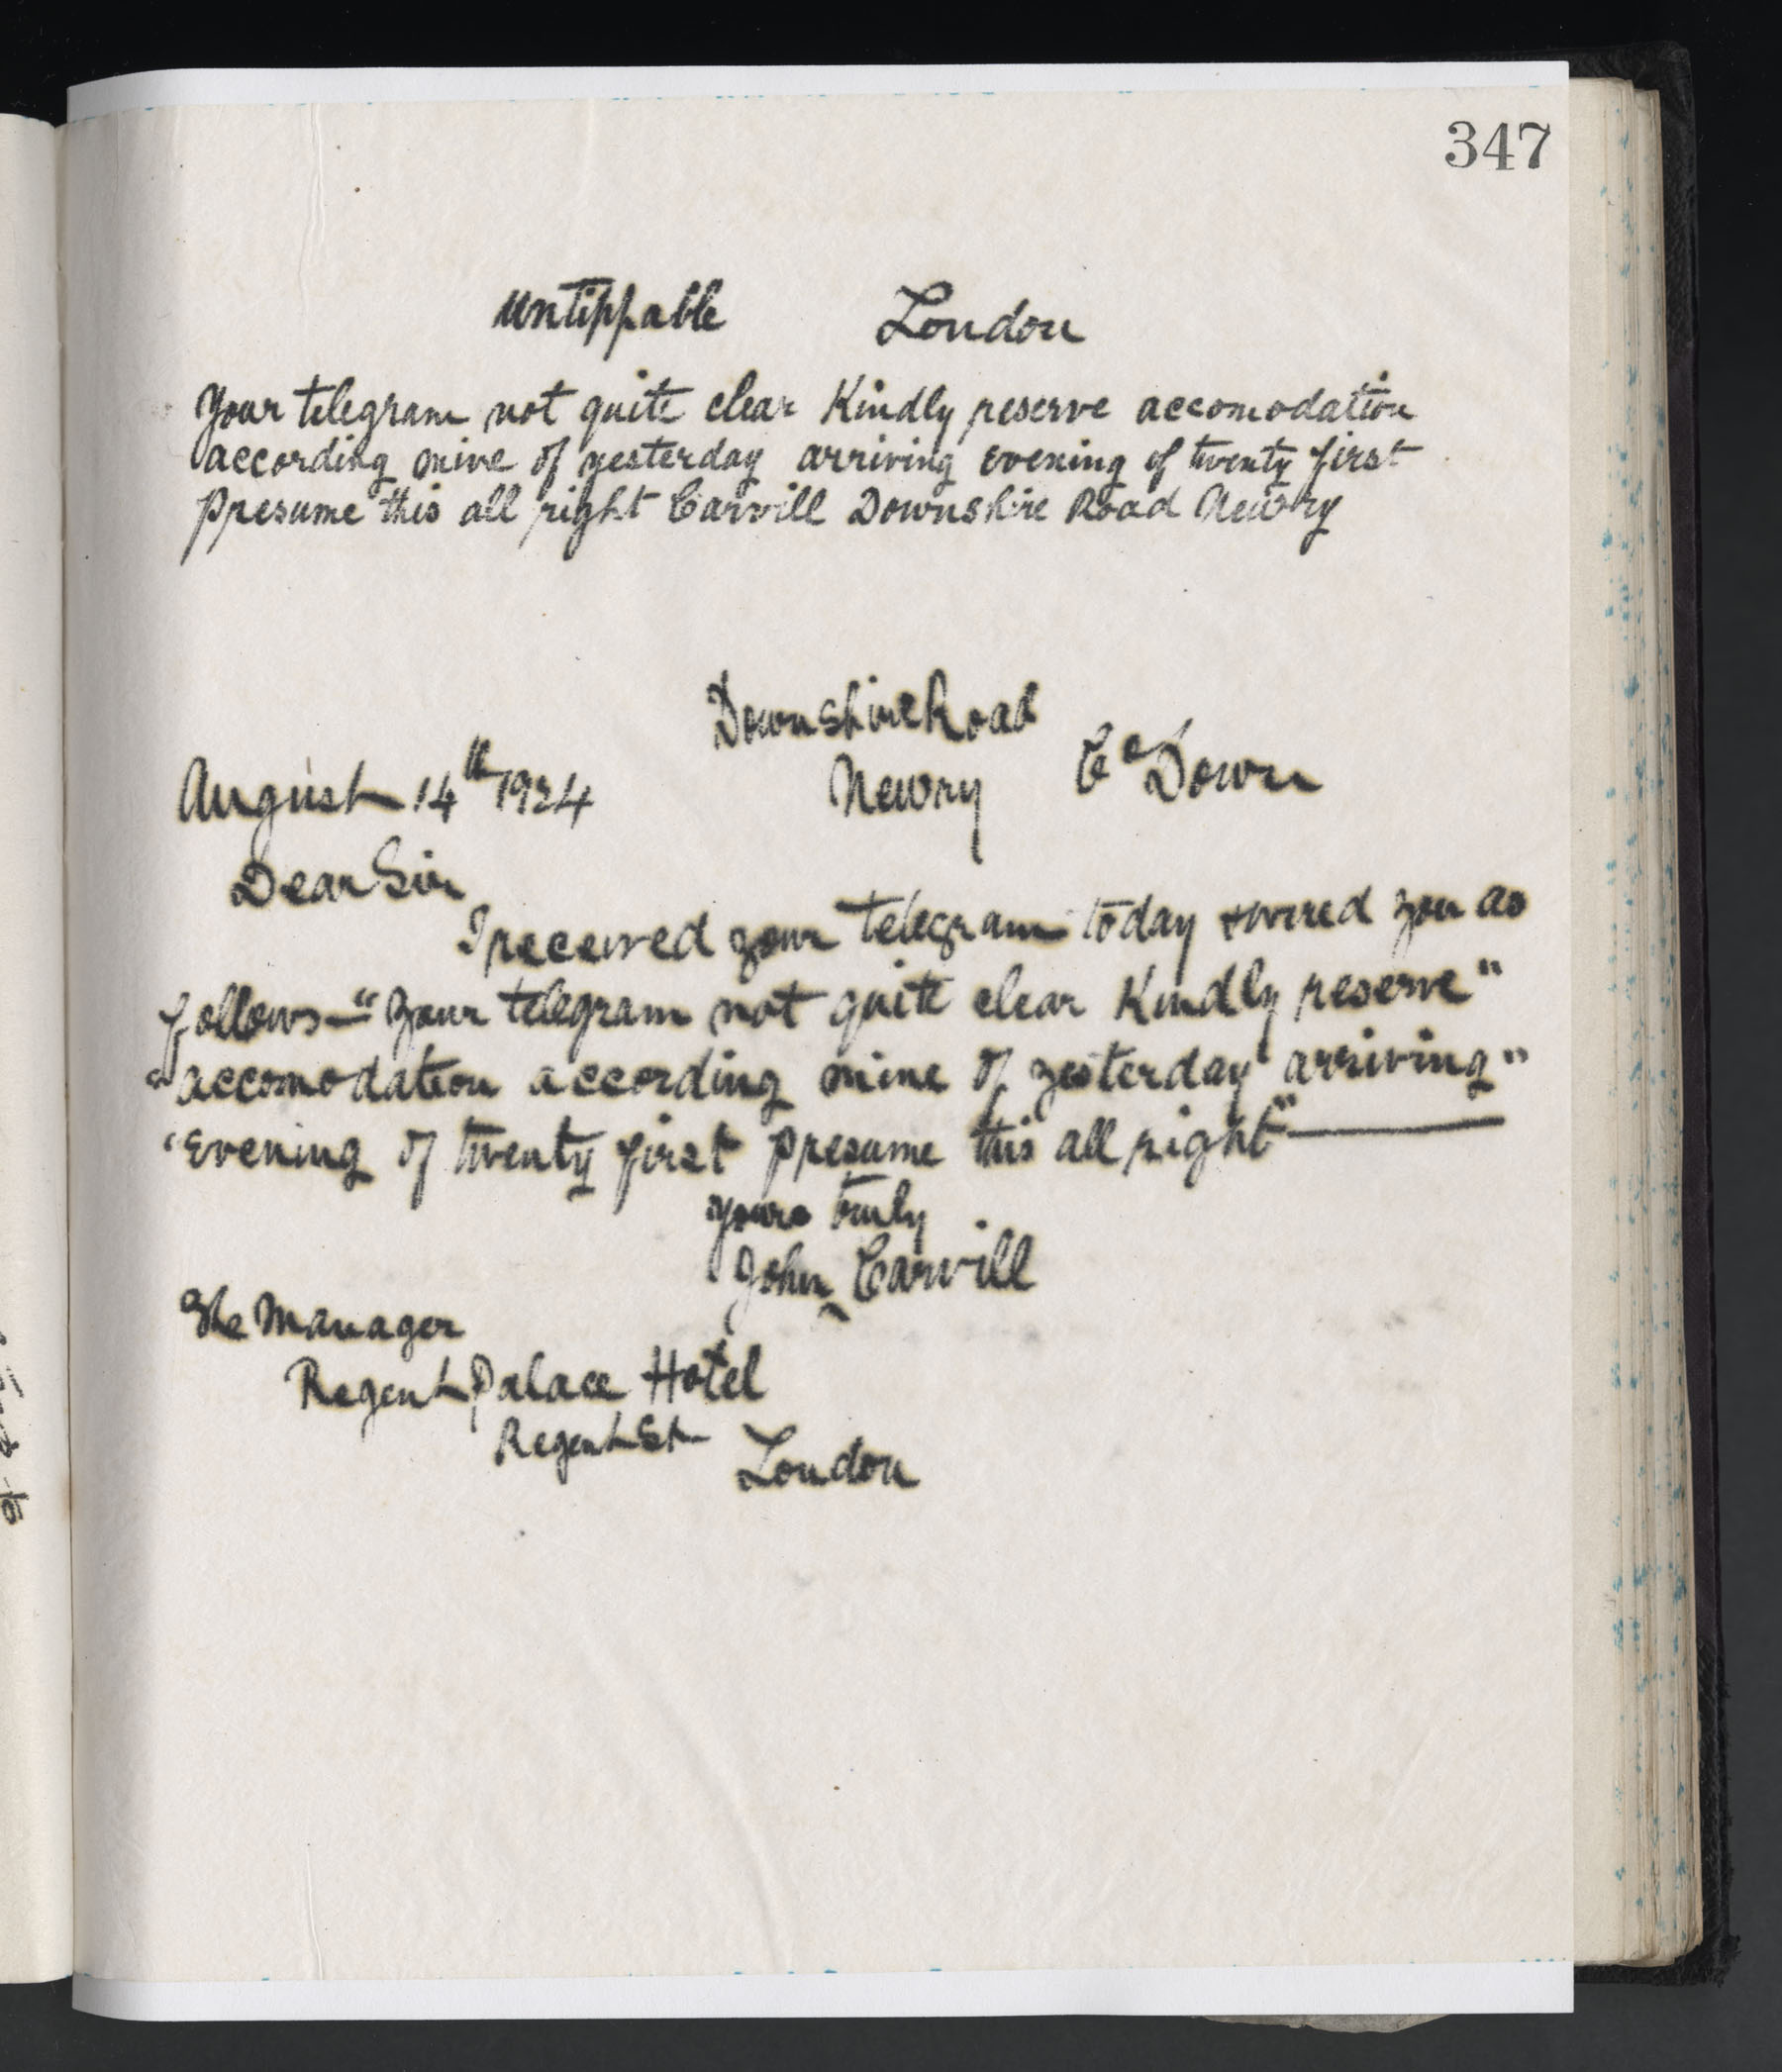 347
Untippable London
Your telegram not quite clear Kindly reserve accomodation
according mine of yesterday arriving evening of twenty first
presume this all right Carvill Downshire Road Newry
Downshire Road
August 14th 1924 Newry Co Down
Dear Sir
I received your telegram today + wired you as
follows—"Your telegram not quite clear Kindly reserve"
"accomodation according mine of yesterday arriving"
"evening of twenty first presume this all right"—
yours truly
John Carvill
The Manager
Regent Palace Hotel
Regent St London